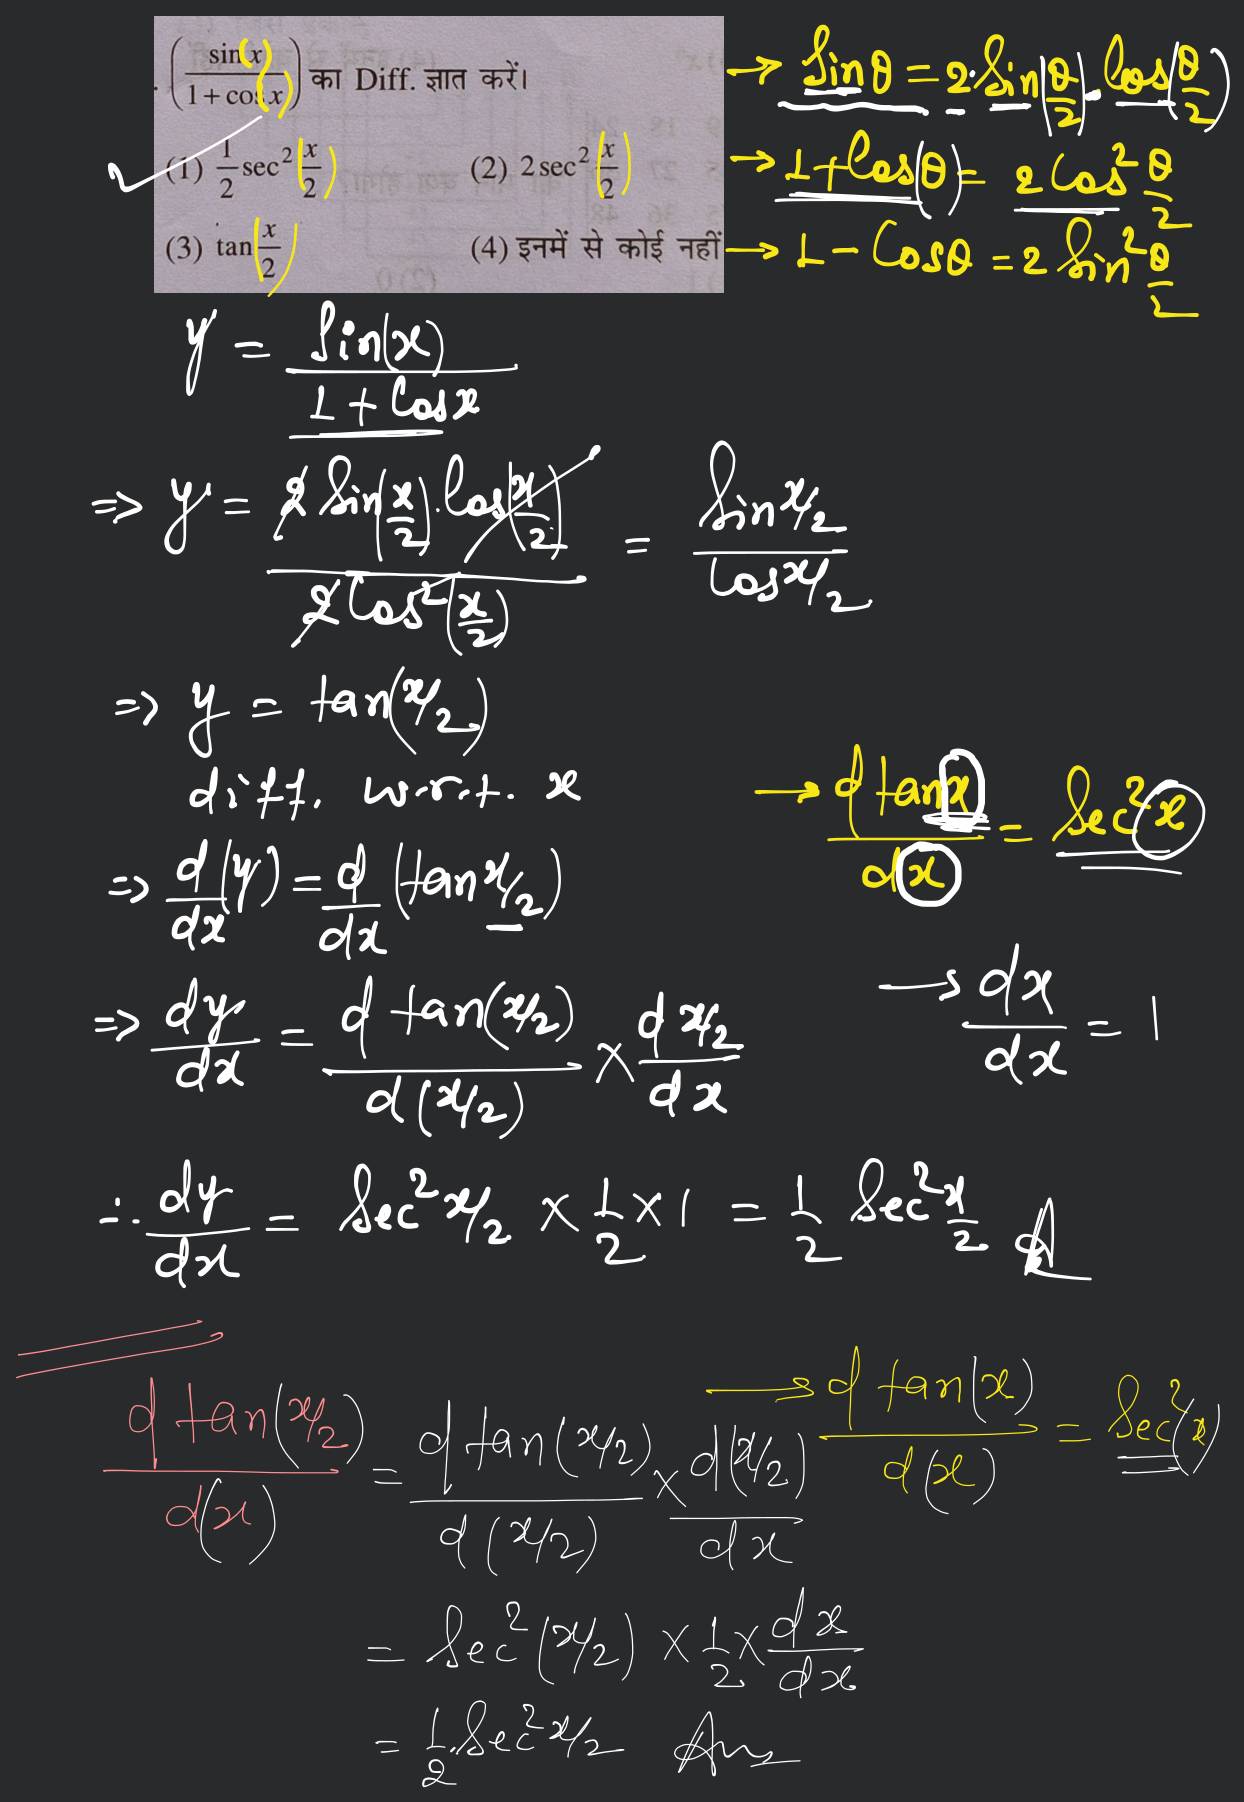 (sin(x) / 1+cos(x)) का Diff. ज्ञात करें।
(1) 1/2 sec² (x/2) (2) 2 sec² (x/2)
(3) tan (x/2) (4) इनमें से कोई नहीं
→ Sinθ = 2·Sin(θ/2)·Cos(θ/2)
→ 1+Cos(θ) = 2Cos² θ/2
→ 1-Cosθ = 2 Sin² θ/2
y = Sin(x) / 1+Cosx
=> y = 2 Sin(x/2)·Cos(x/2) / 2Cos²(x/2) = Sin x/2 / Cos x/2
=> y = tan(x/2)
diff. w.r.t. x
→ d tanx / dx = Sec²x
=> d/dx (y) = d/dx (tan x/2)
→ dx/dx = 1
=> dy/dx = d tan(x/2) / d(x/2) × d x/2 / dx
∴ dy/dx = Sec² x/2 × 1/2 × 1 = 1/2 Sec² x/2 A
→ d tan(x) / d(x) = Sec²(x)
d tan(x/2) / d(x) = d tan(x/2) / d(x/2) × d(x/2) / dx
= Sec²(x/2) × 1/2 × dx/dx
= 1/2·Sec² x/2 Ans